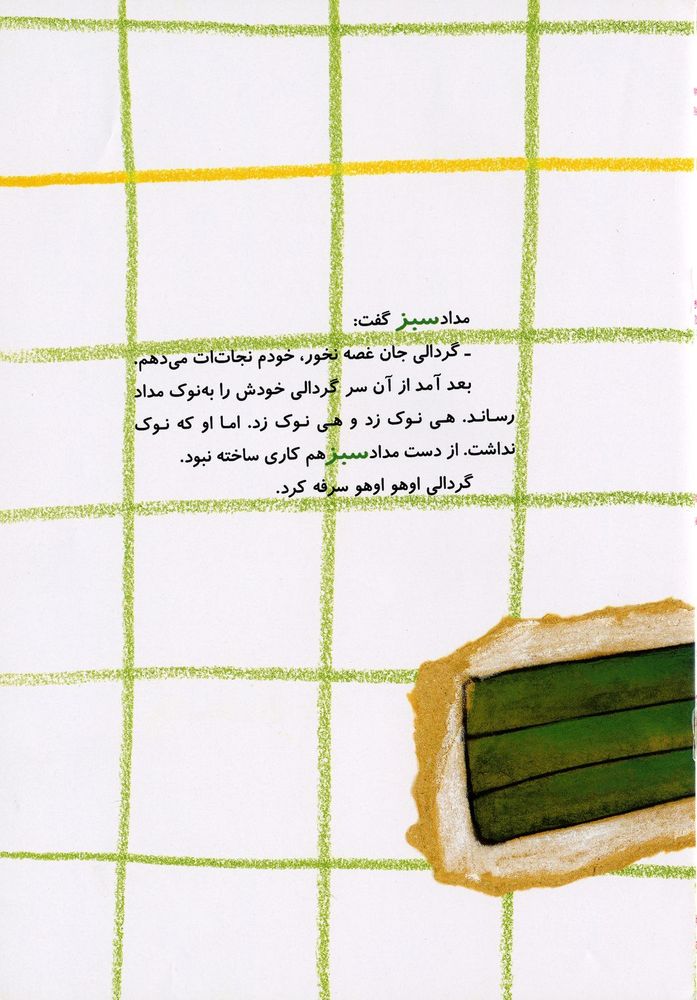 مدادسبز گفت:
ـ گردالی جان غصه نخور، خودم نجات‌ات می‌دهم.
بعد آمد از آن سر گردالی خودش را به‌نوک مداد
رساند. هی نوک زد و هی نوک زد. اما او که نوک
نداشت. از دست مدادسبز هم کاری ساخته نبود.
گردالی اوهو اوهو سرفه کرد.